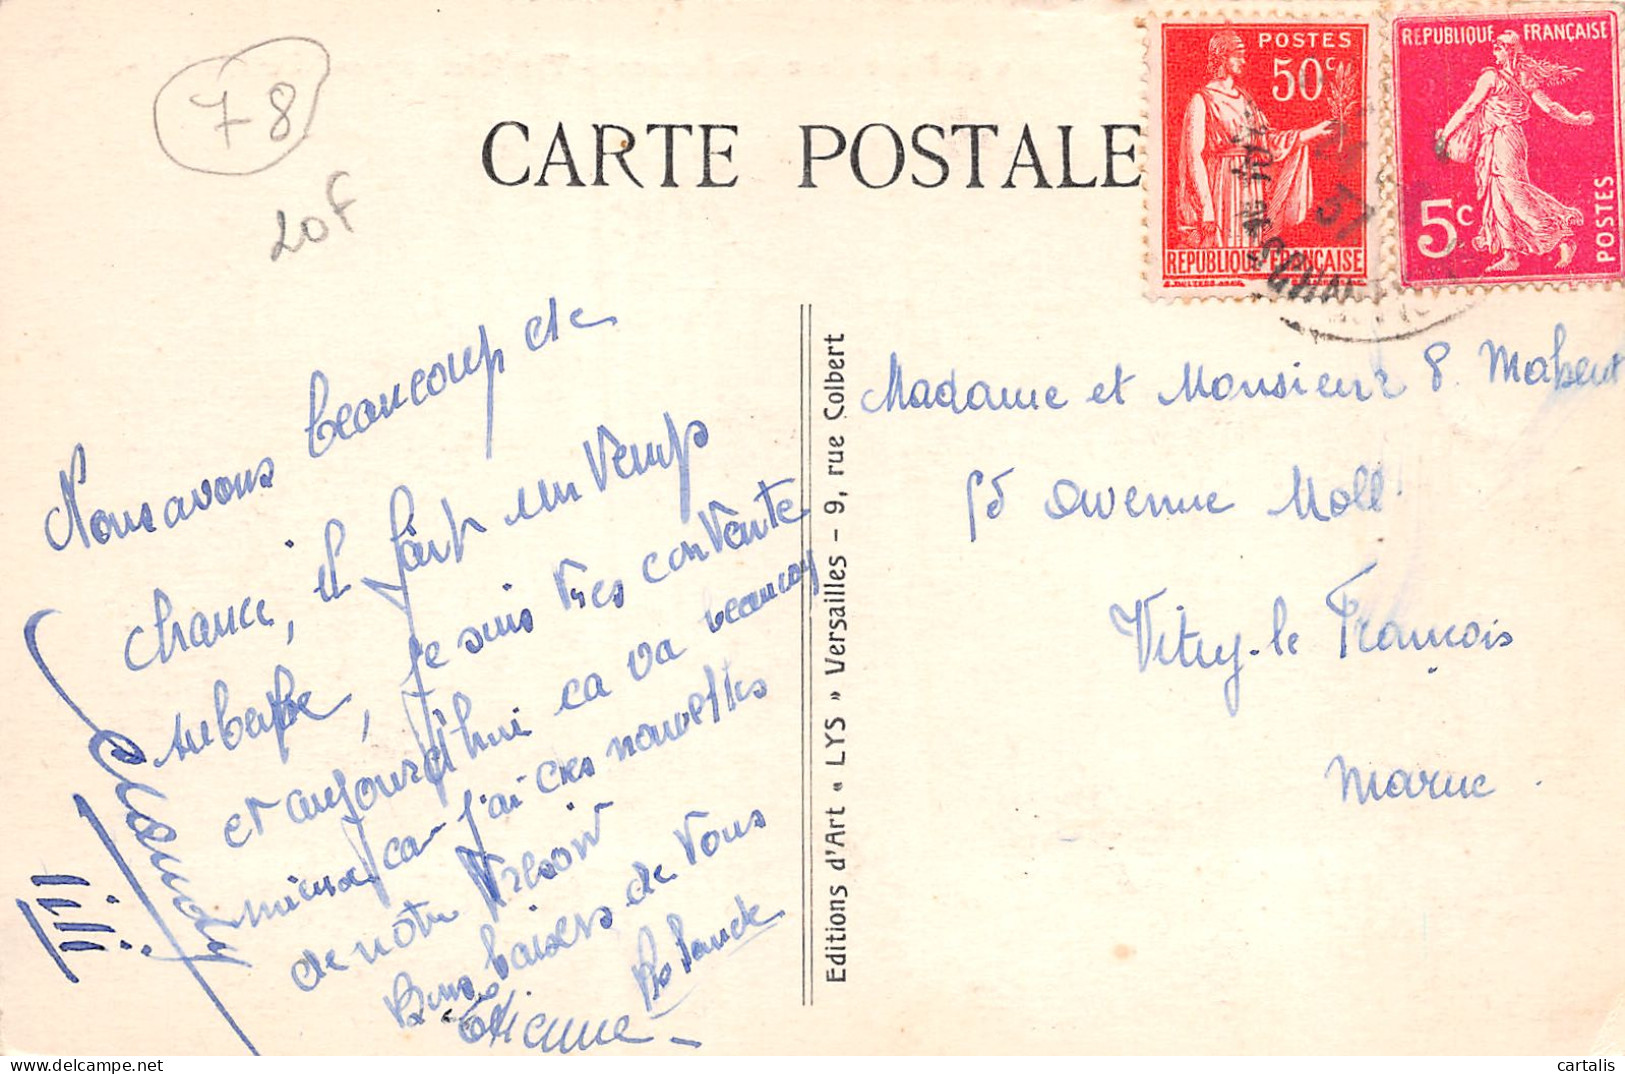 78
20F
CARTE POSTALE
POSTES
50c
REPUBLIQUE FRANÇAISE
REPUBLIQUE FRANÇAISE
5c
POSTES
37
Nous avons beaucoup de
chance, il fait un temps
superbe, je suis très contente
et aujourd'hui ca va beaucoup
mieux car j'ai des nouvelles
de notre Trésor
Bons baisers de Vous
Etienne
Editions d'Art « LYS » Versailles - 9, rue Colbert
Madame et Monsieur P. Mabent
avenue Moll
Vitry-le François
Marne
cartalis